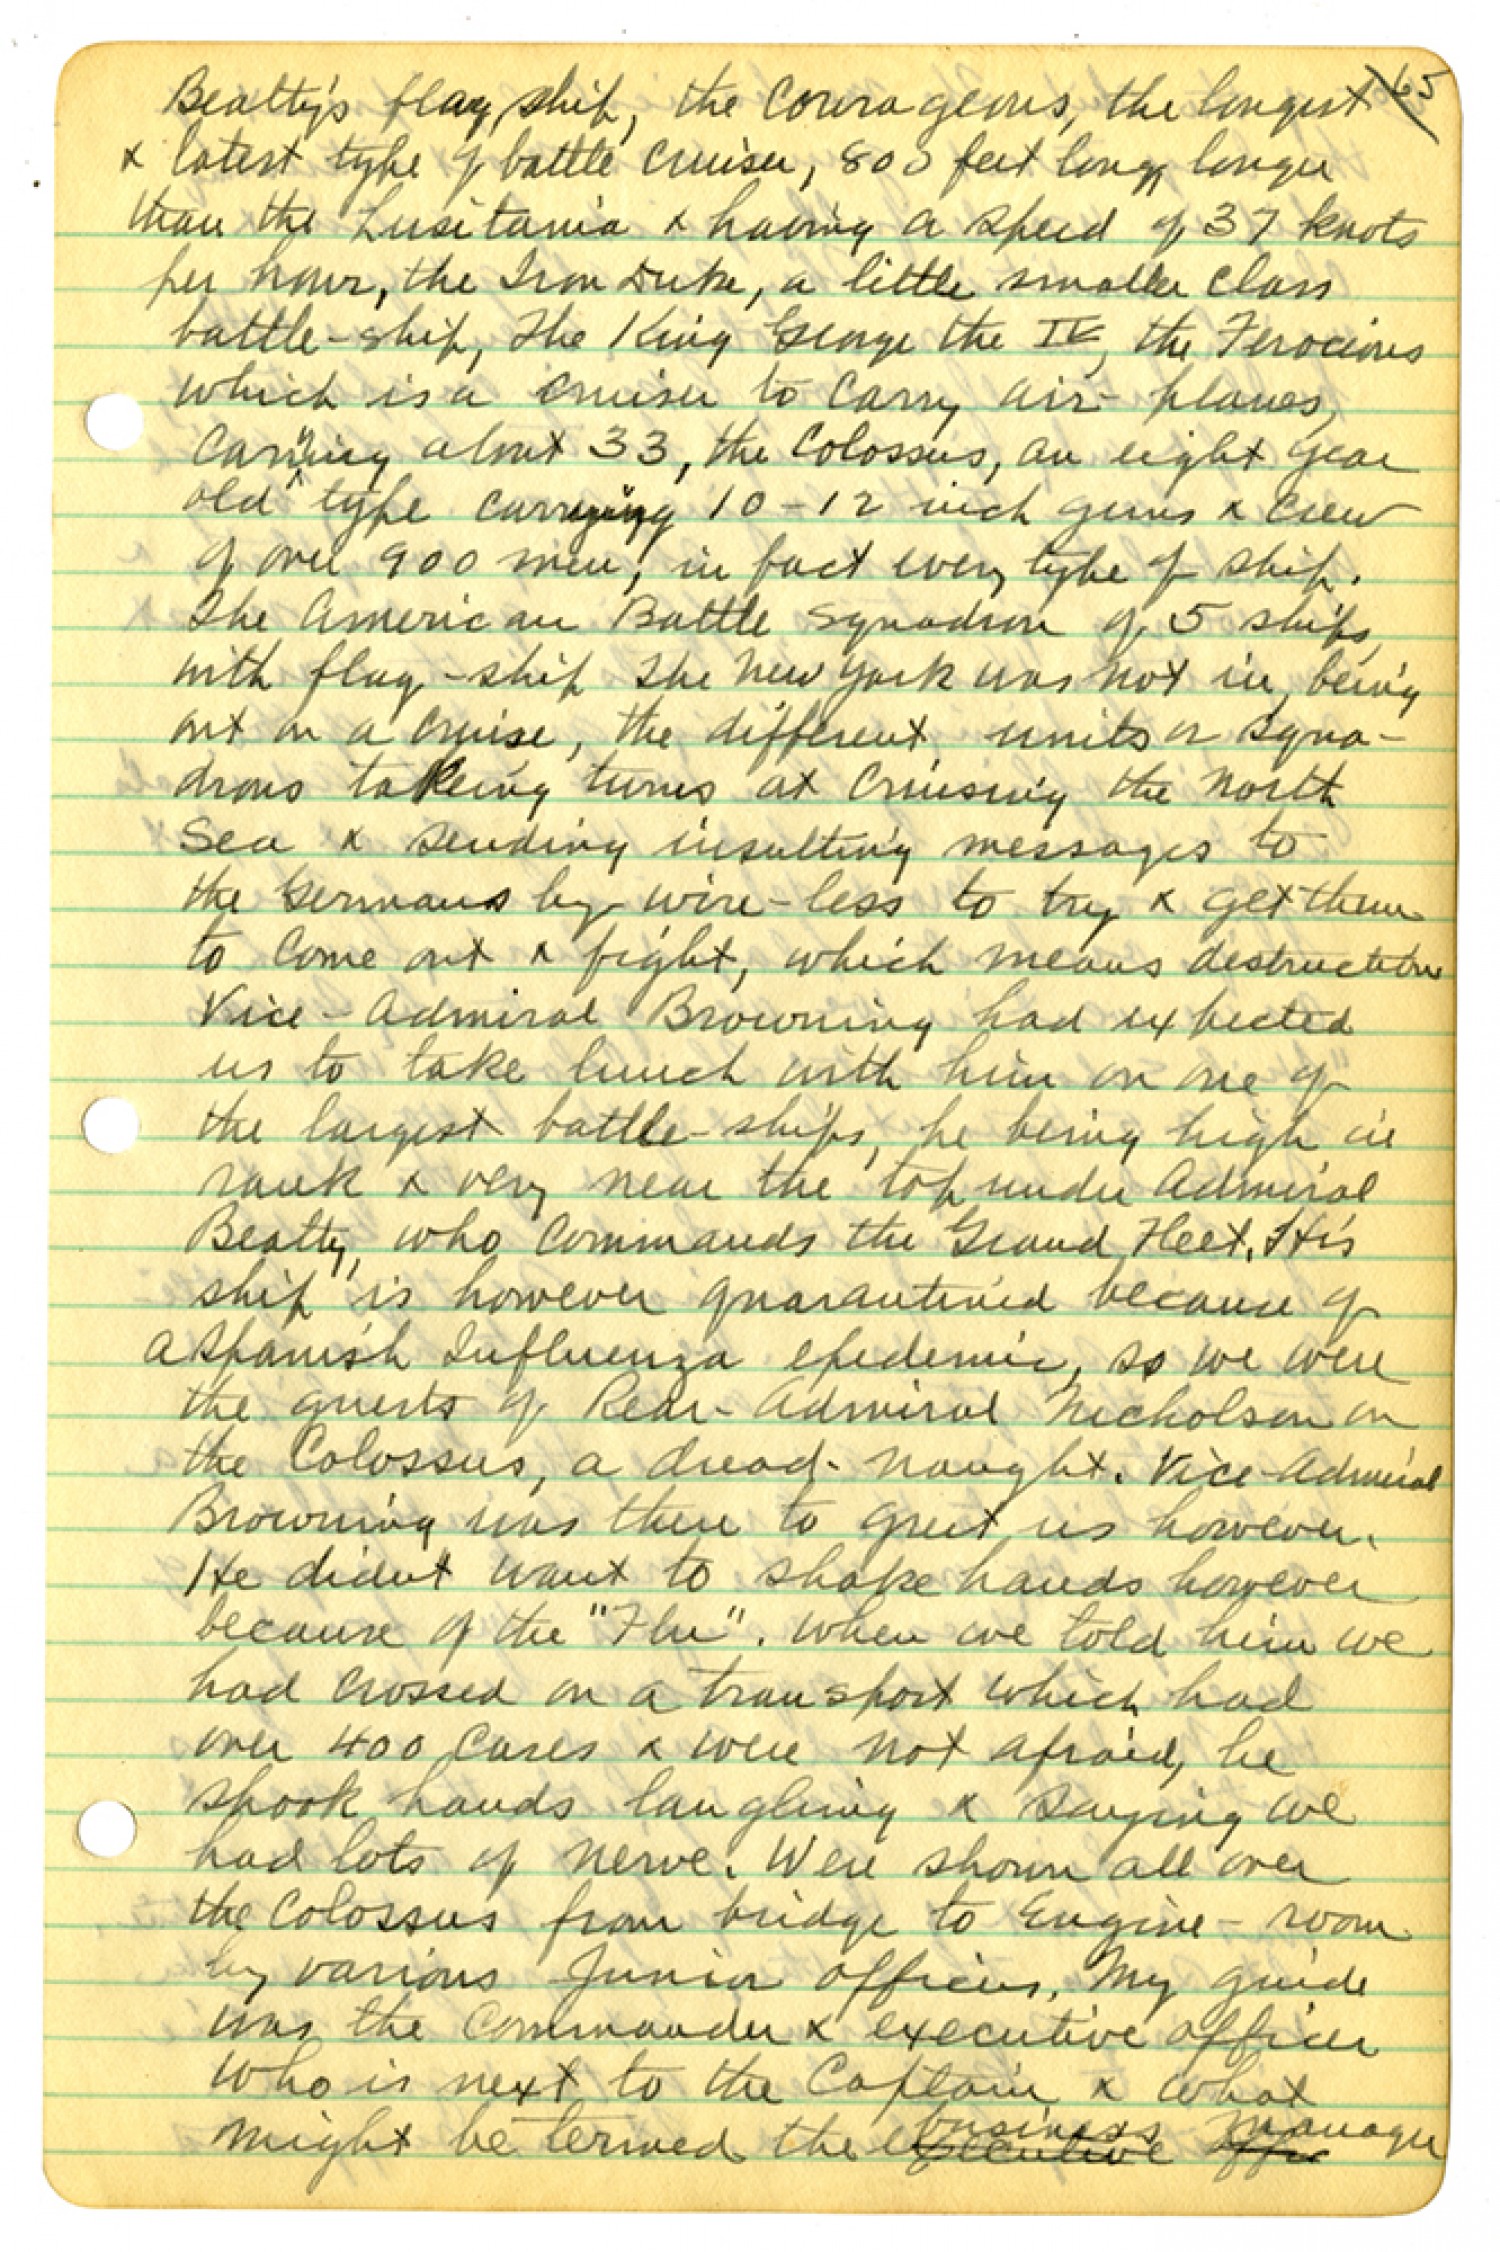 65
Beatty's flag ship, the Courageous, the longest
& latest type of battle cruiser, 800 feet long, longer
than the Lusitania & having a speed of 37 knots
per hour, the Iron Duke, a little smaller class
battle-ship, the King George the IV, the Ferocious
which is a cruiser to carry air-planes,
carrying about 33, the Colossus, an eight year
old type carrying 10-12 inch guns & crew
of over 900 men, in fact every type of ship.
The American Battle Squadron of 5 ships,
with flag-ship The New York was not in, being
out on a cruise, the different units or squa-
drons taking turns at cruising the North
Sea & sending insulting messages to
the Germans by wire-less to try & get them
to come out & fight, which means destruction
Vice-Admiral Browning had expected
us to take lunch with him on one of
the largest battle-ships, he being high in
rank & very near the top under Admiral
Beatty, who commands the Grand Fleet. His
ship is however quarantined because of
a Spanish Influenza epidemic, so we were
the guests of Rear-Admiral Nicholson on
the Colossus, a dread-nought. Vice-Admiral
Browning was there to greet us however.
He didn't want to shake hands however
because of the "Flu". When we told him we
had crossed on a transport which had
over 400 cases & were not afraid, he
shook hands laughing & saying we
had lots of nerve. Were shown all over
the Colossus from bridge to Engine-room
by various Junior officers. My guide
was the Commander & executive officer
who is next to the Captain & what
might be termed the business manager
executive